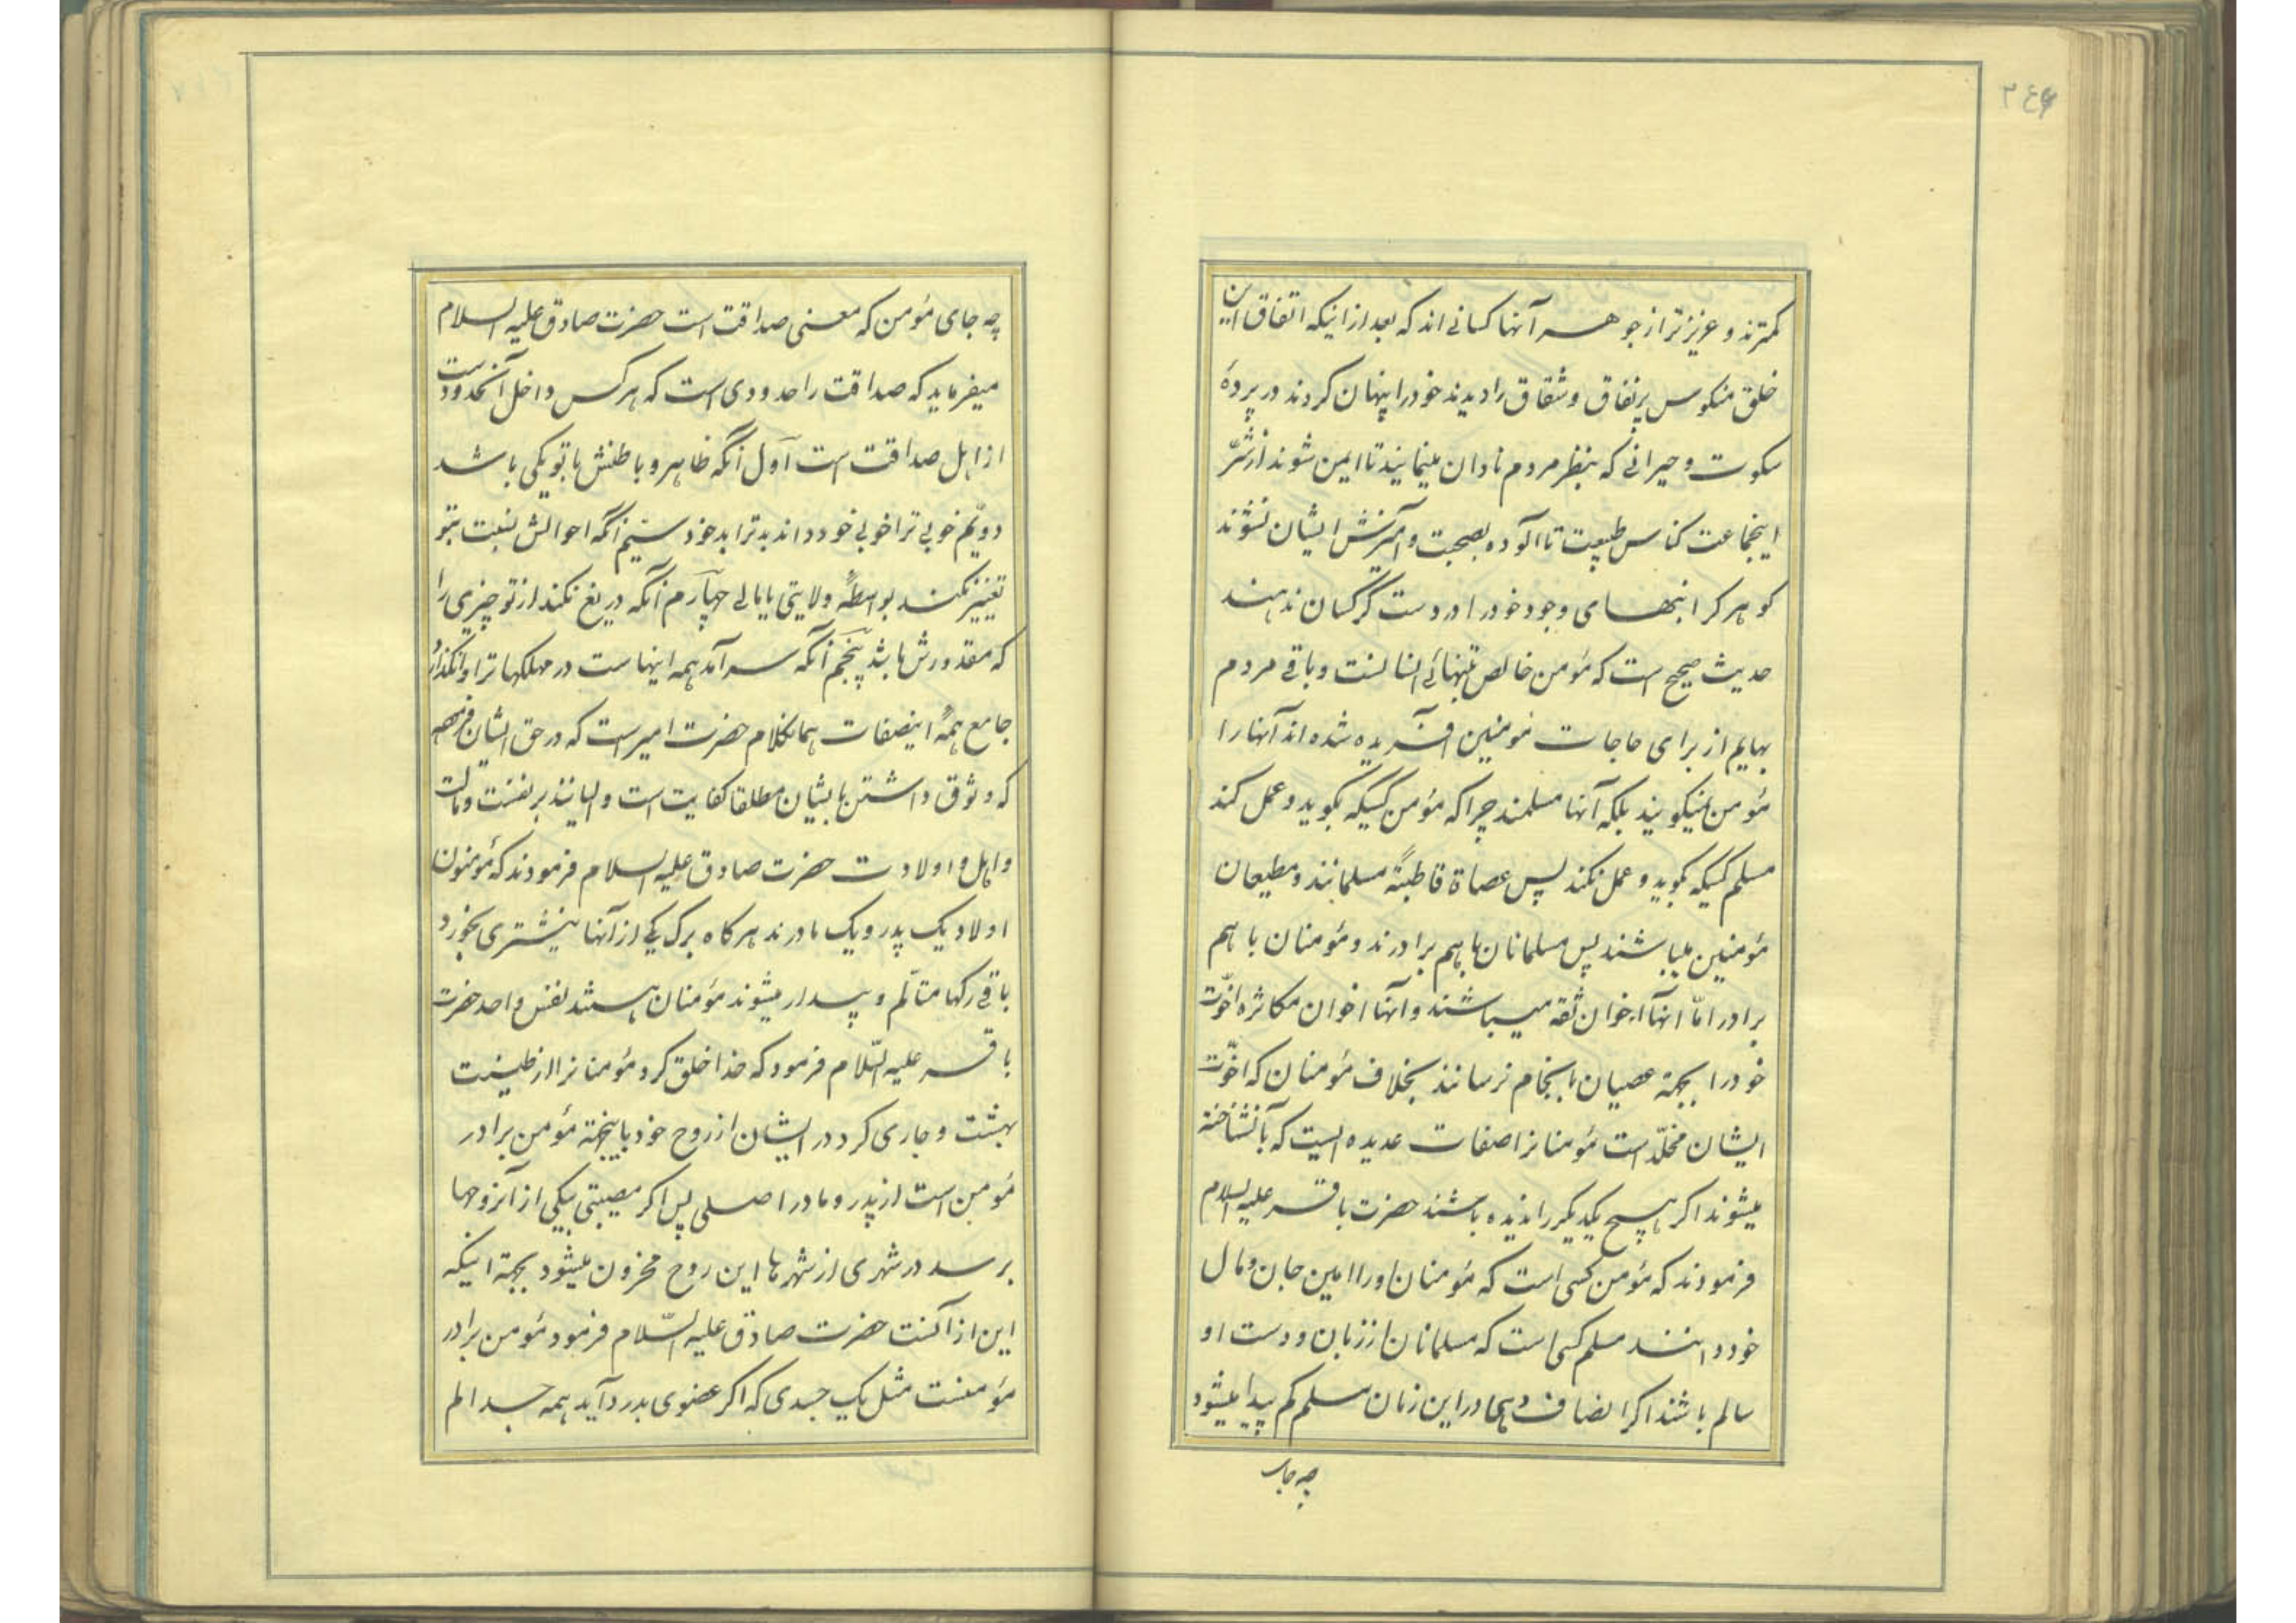 ۳۴۶
کمترند و عزیزتر از جوهر آنها کسانی‌اند که بعد از اینکه اتفاق این
خلق منکوس پرنفاق و شقاق را دیدند خود را پنهان کردند در پردهٔ
سکوت و حیرانی که بنظر مردم نادان مینمایند تا ایمن شوند از شرّ
اینجماعت کناس طبیعت تا آلوده بصحبت و آمیزش ایشان نشوند
کوهر کرانبهای وجود خود را در دست کرکسان ندهند
حدیث صحیح است که مؤمن خالص تنهائی انسانست و باقی مردم
بهایم از برای حاجات مؤمنین آفریده شده‌اند آنها را
مؤمن نمیکویند بلکه آنها مسلمند چرا که مؤمن کسیکه بکوید و عمل کند
مسلم کسیکه بکوید و عمل نکند پس عصاة قاطبةً مسلمانند و مطیعان
مؤمنین میباشند پس مسلمانان باهم برادرند و مؤمنان باهم
برادر امّا آنها اخوان ثقه میباشند و آنها اخوان مکاثره اخوّت
خود را بجهة عصیان بانجام نرسانند بخلاف مؤمنان که اخوّت
ایشان مخلّد است مؤمنانرا صفات عدیده ایست که بآن شناخته
میشوند اکر هیچ یکدیکر را ندیده باشند حضرت باقر علیه السلام
فرمودند که مؤمن کسی است که مؤمنان او را امین جان و مال
خود دانند مسلم کسی است که مسلمانان از زبان و دست او
سالم باشند اکر انصاف دهی در این زمان مسلم کم پیدا میشود
چه جای
چه جای مؤمن که معنی صداقت است حضرت صادق علیه السلام
میفرماید که صداقت را حدودی است که هرکس داخل آنحدودست
از اهل صداقت است اوّل آنکه ظاهر و باطنش با تو یکی باشد
دویّم خوبی ترا خوبی خود داند بد ترا بد خود سیّم آنکه احوالش نسبت بتو
تغییر نکند بواسطهٔ ولایتی یا مالی چهارم آنکه دریغ نکند از تو چیزی را
که مقدورش باشد پنجم آنکه سرآمد همه اینهاست در مهلکها ترا وانکذارد
جامع همهٔ اینصفات همانکلام حضرت امیر است که در حق ایشان فرموده
که وثوق داشتن بایشان مطلقا کفایت است و امانند بر نفست و مالت
و اهل و اولادت حضرت صادق علیه السلام فرمودند که مؤمنون
اولاد یک پدر و یک مادرند هرکاه برک یکی از آنها نیشتری بخورد
باقی رکها متألم و بیدار میشوند مؤمنان هستند نفس واحد حضرت
باقر علیه السّلام فرمود که خدا خلق کرد مؤمنانرا از طینت
بهشت و جاری کرد در ایشان از روح خود باینجهة مؤمن برادر
مؤمن است از پدر و مادر اصلی پس اکر مصیبتی بیکی از آنروحها
برسد در شهری از شهرها این روح محزون میشود بجهة اینکه
این از آنست حضرت صادق علیه السّلام فرمود مؤمن برادر
مؤمنست مثل یک جسدی که اکر عضوی بدرد آید همه جسد الم